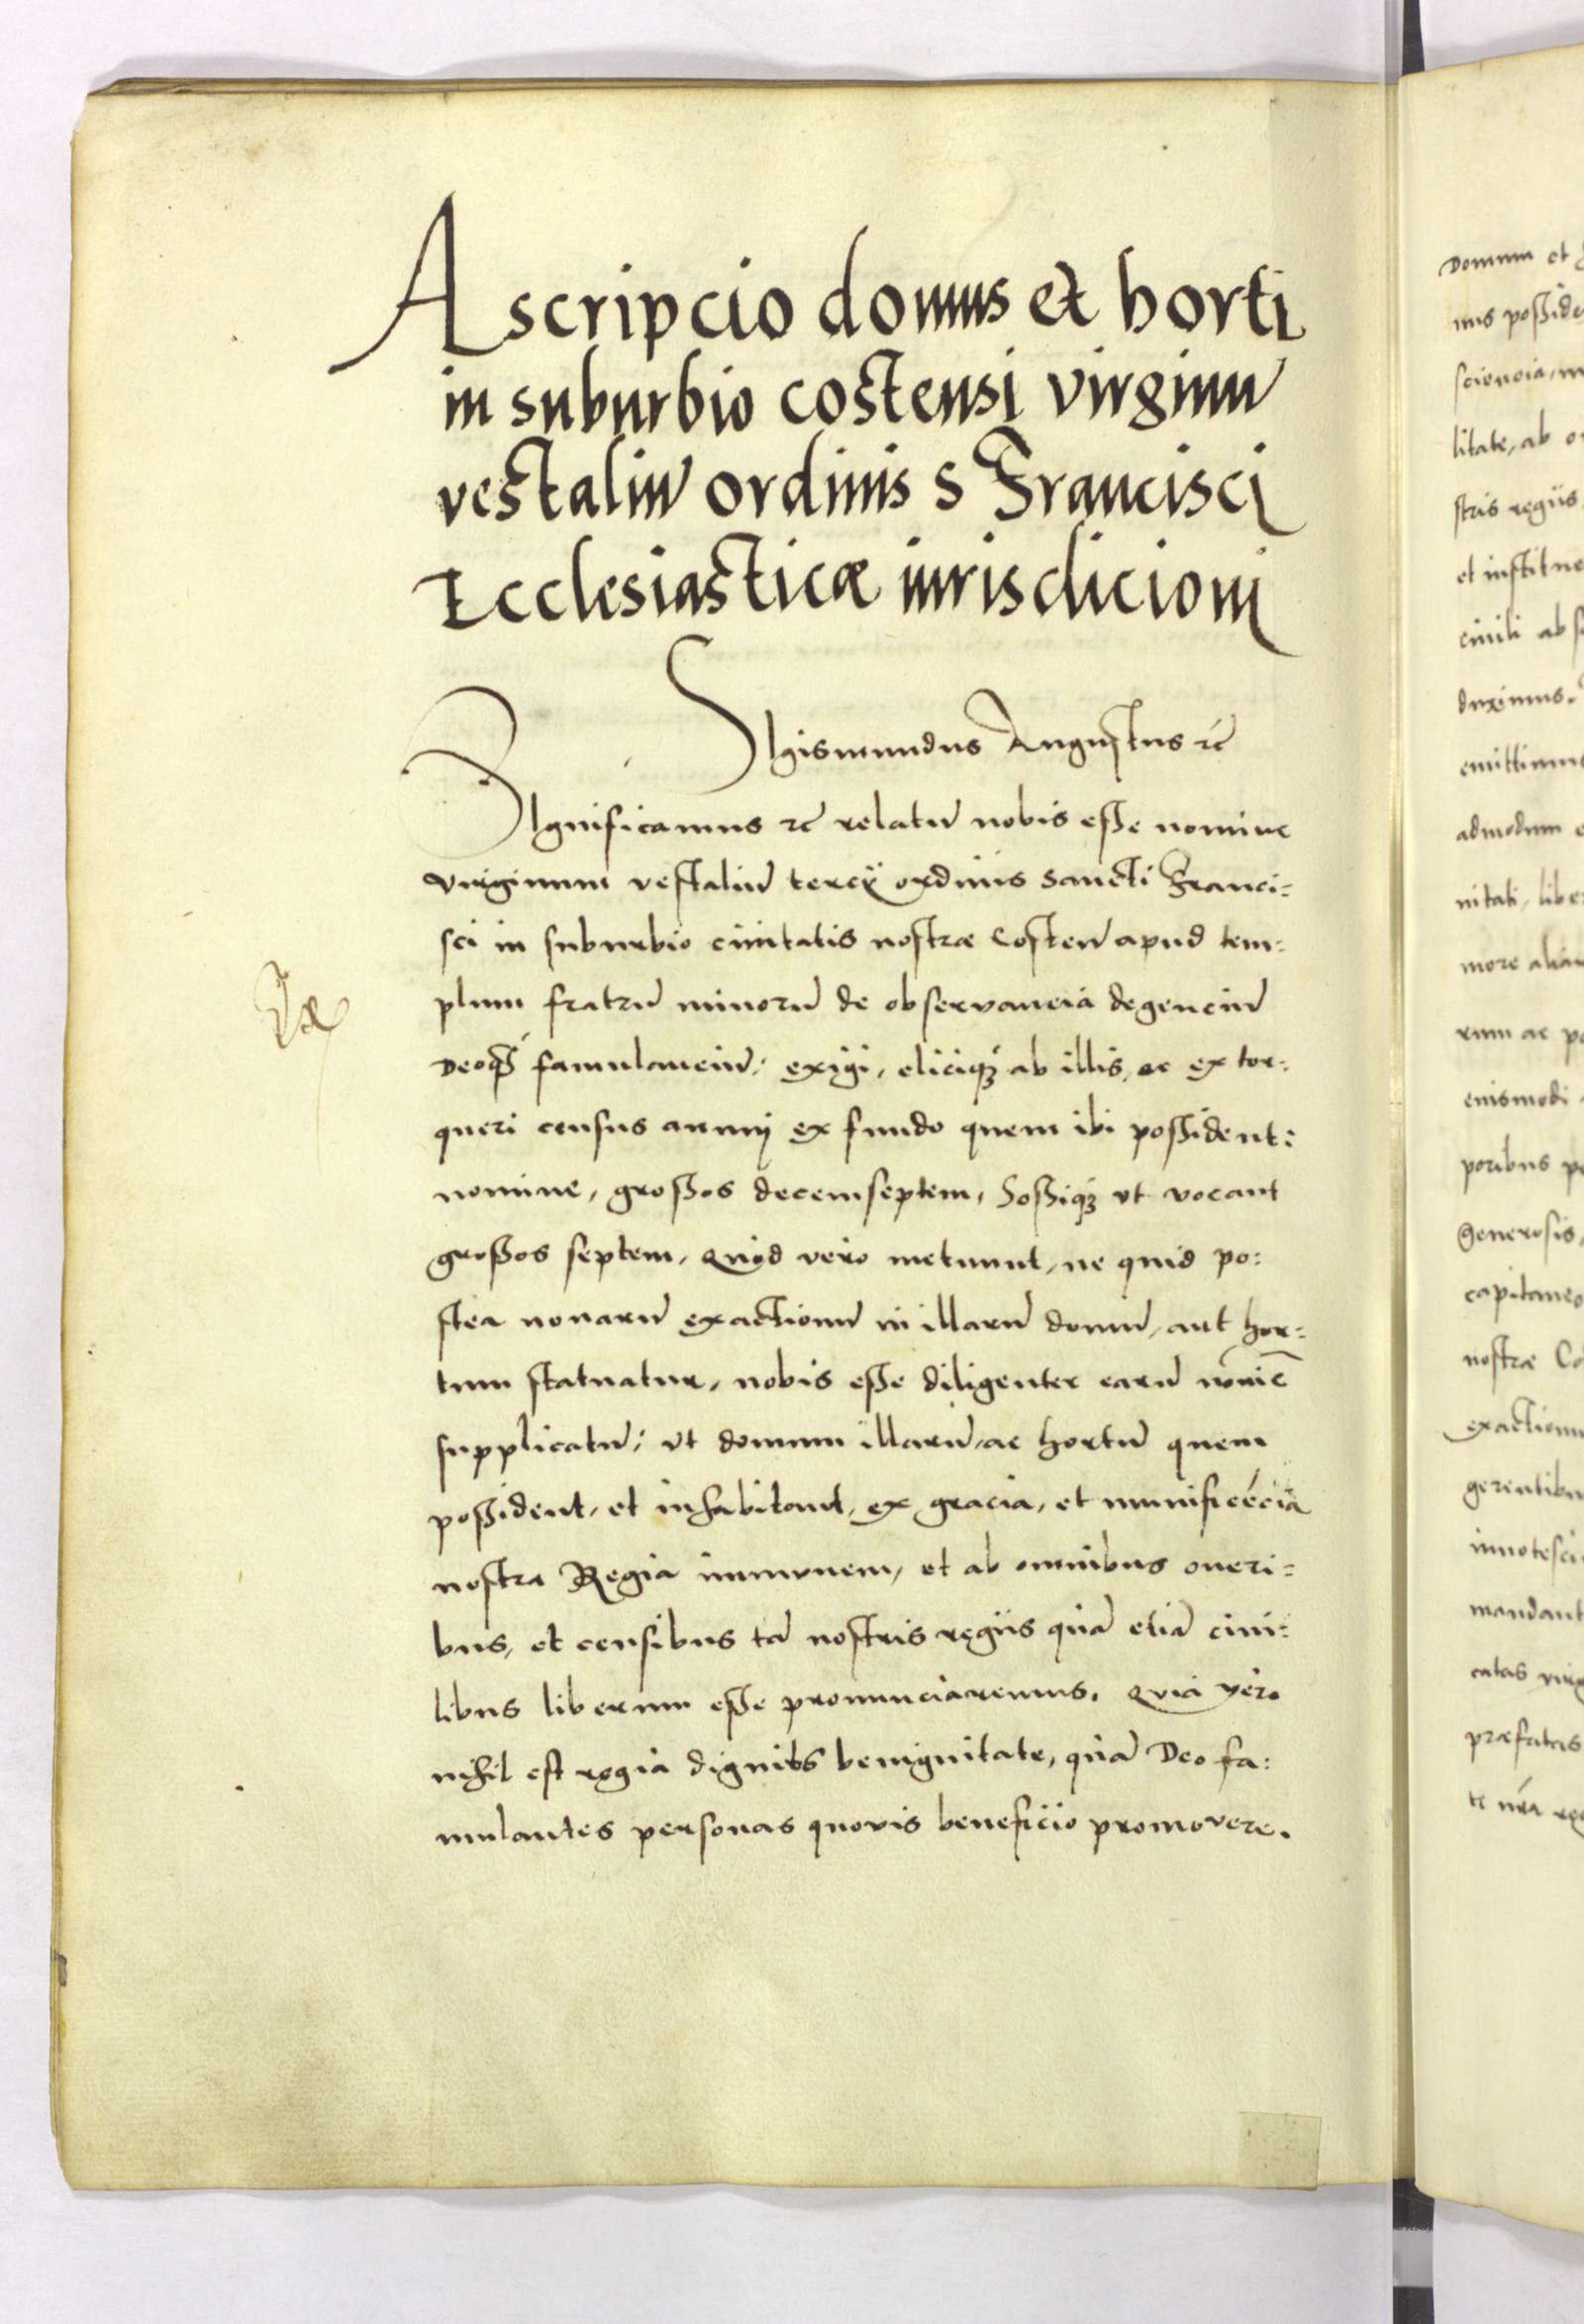 Ascripcio domus et horti
in suburbio costensi virginū
vestaliū ordinis s Francisci
Ecclesiasticæ iurisdicioni
Sigismundus Augustus ꝛc̄
Significamus ꝛc̄ relatū nobis esse nomine
virginum vestaliū tercÿ ordinis Sancti Franci=
sci in suburbio ciuitatis nostræ Costen̄ apud tem=
plum fratrū minorū de obseruancia degenciū
Deoqꝫ famulanciū: exigi, eliciqꝫ ab illis, ac extor=
queri census annuj ex fundo quem ibi possident:
nomine, grossos decemseptem, Sossiqꝫ vt vocant
grossos septem, Quod vero metuunt, ne quid po=
stea nouarū exactionū in illarū domū, aut hor=
tum statuatur, nobis esse diligenter earū
supplicatū: vt domum illarū, ac hortū quem
possident, et inhabitant, ex gracia, et munificēcia
nostra Regia immunem, et ab omnibus oneri=
bus, et censibus tā nostris regiis quā etiā ciui=
libus liberum esse pronunciaremus. Quia vero
nihil est regia dignius benignitate, quā Deo fa=
mulantes personas quouis beneficio promovere.
Domum et
mus posside
sciencia,
litate, ab
stris regiis
et institue
ciuili ab
duximus.
emittimus
admodum
nitati, libe
more
rum ac
eiusmodi
poribus
Generosis,
capitaneo
nostræ Co
exactionu
gerentibu
innotesci
mandant
catas virg
præfatas
te nr̄a reg